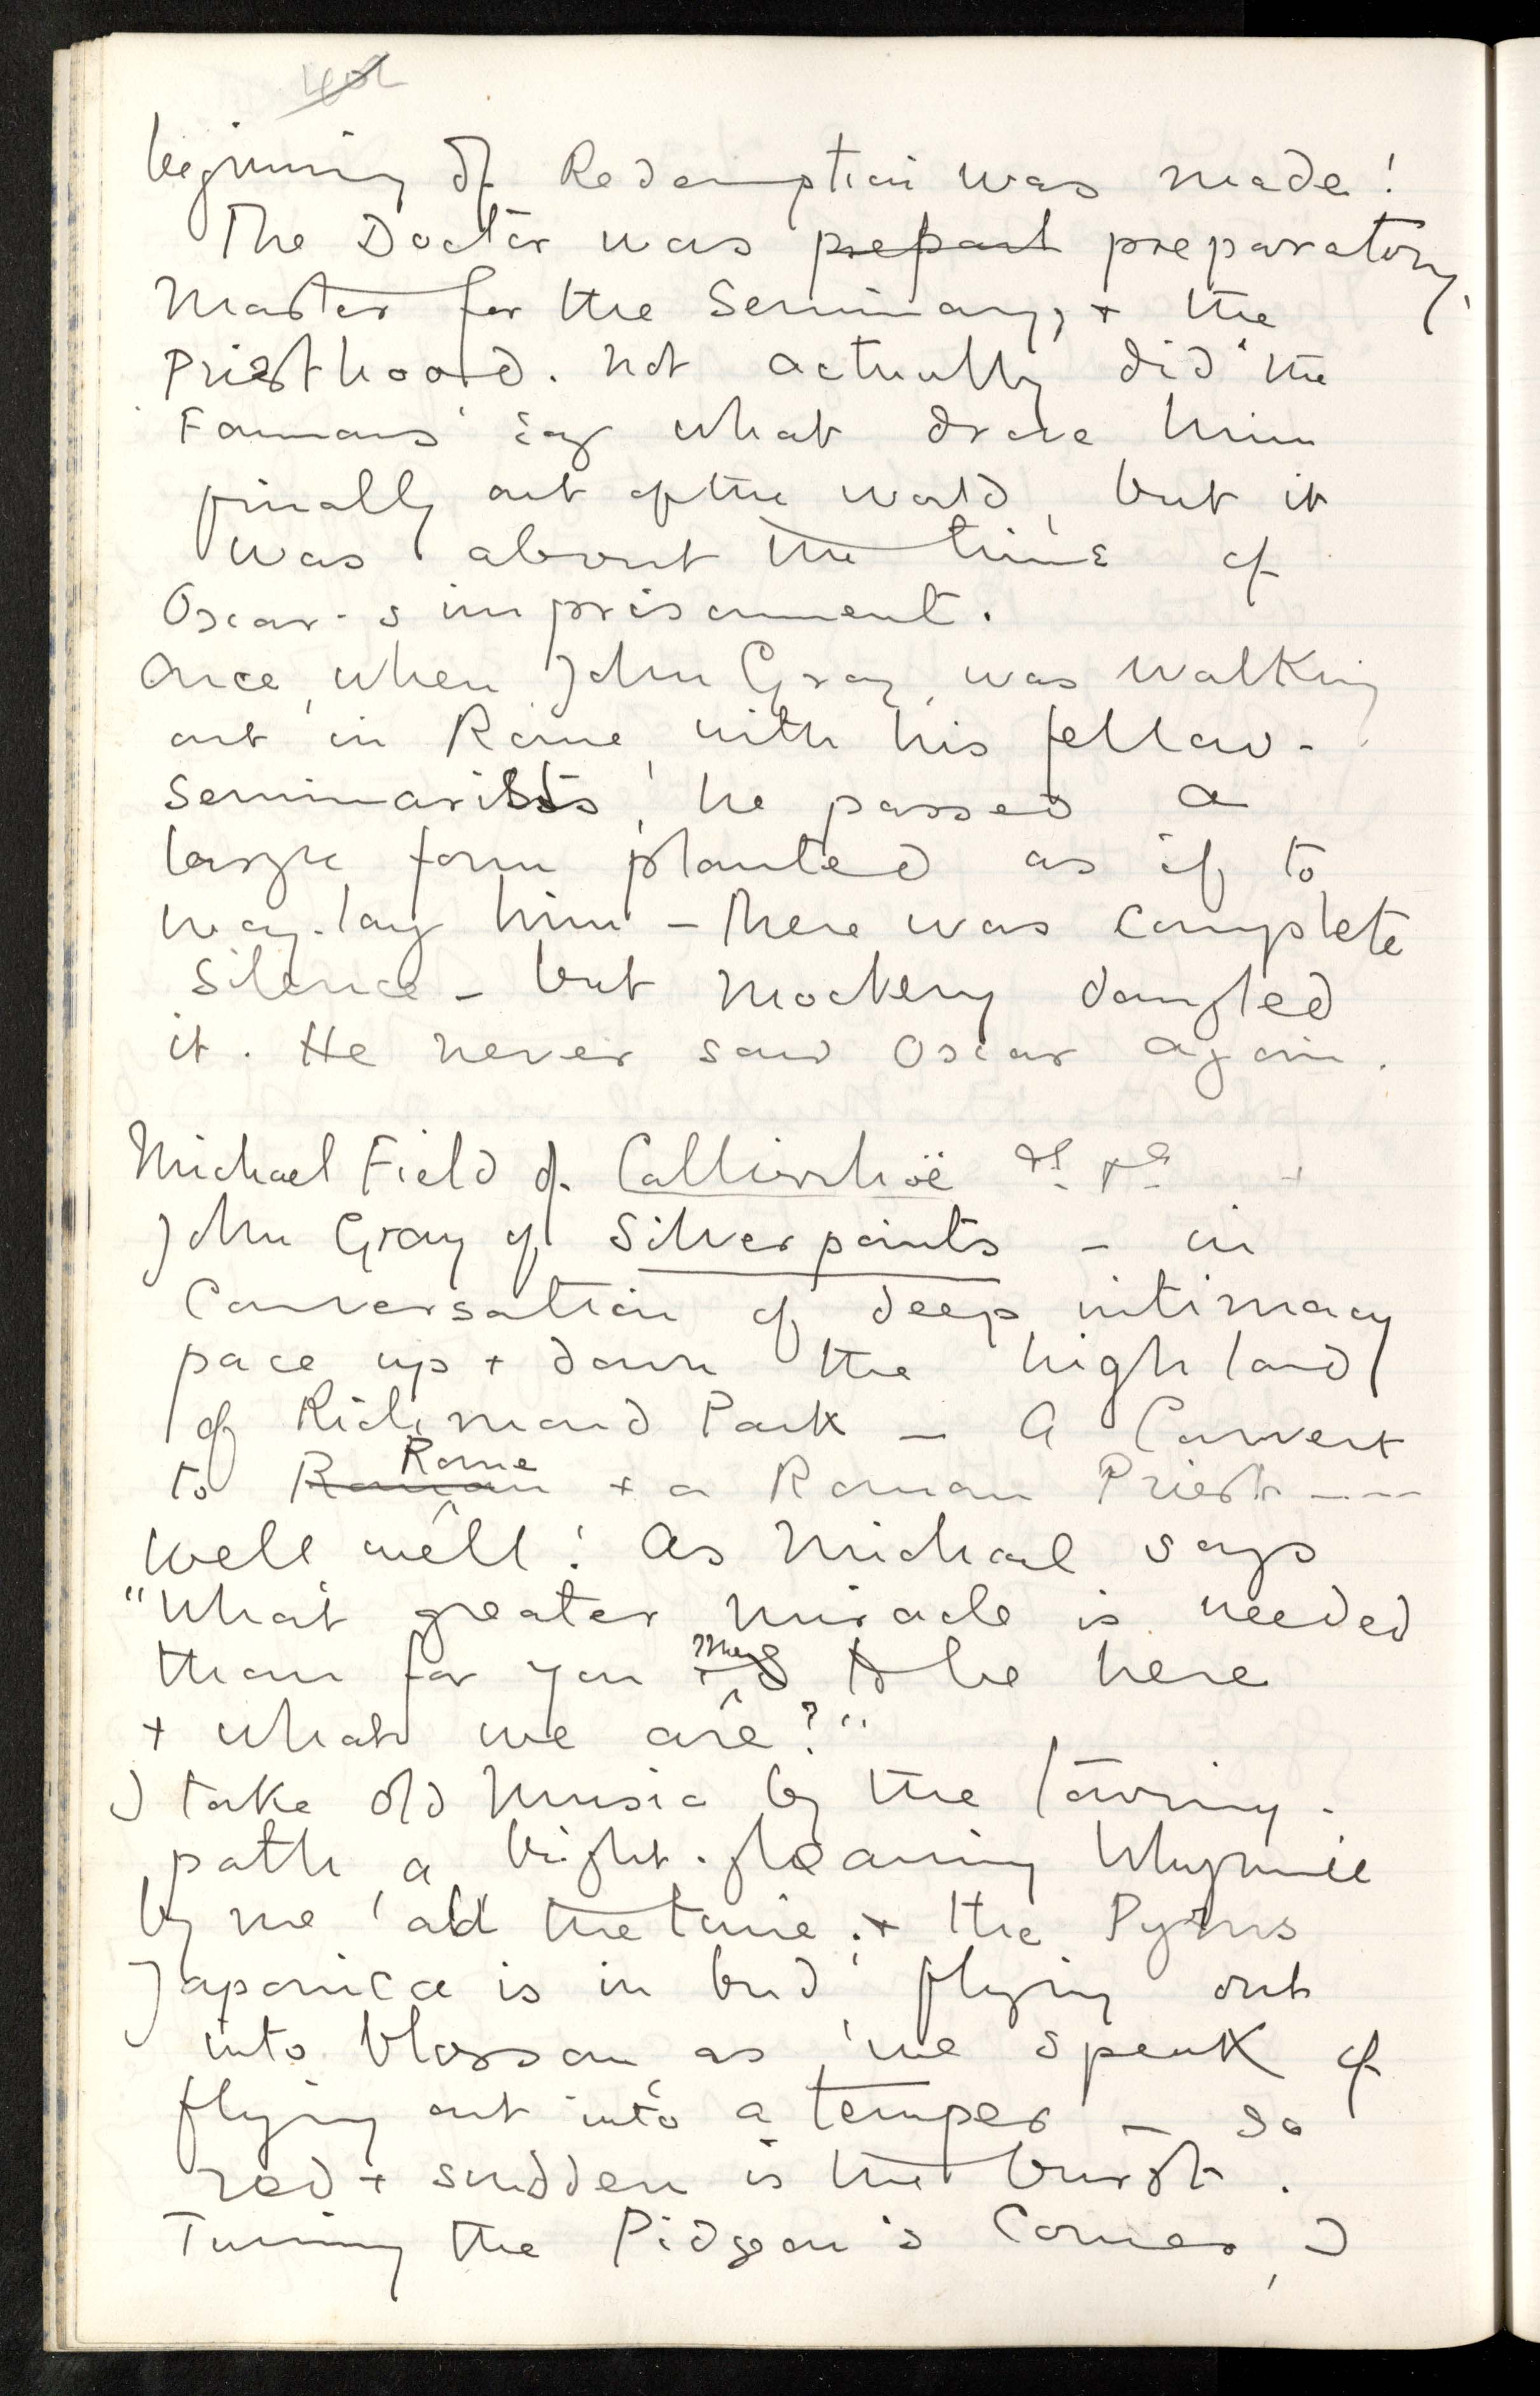 beginning of Redemption was made!
The Doctor was prepart preparatory
Master for the Seminary, + the
Priesthood. Not actually did the
Famous say what drove him
finally out of the world, but it
was about the time of
Oscar's imprisonment.
Once, when John Gray, was walking
out in Rome, with his fellow-
Seminarists, he passed a
large form planted as if to
way-lay him – there was complete
Silence – but mockery dangled
it. He never saw Oscar again.
Michael Field of Callirrhoë
John Gray of Silverpoints – in
Conversation of deep intimacy
pace up + down the high land
of Richmond Park – A Convert
to Roman Rome + a Roman Priest ---
Well well! As Michael says
"What greater miracle is needed
than for you + me to be here
+ what we are?"
I take old Music by the
path, a bright-gleaming Whymie
by me all the time. + the Pyrus
Japonica is in bud, flying out
into blossom, as we speak of
flying out into a temper – so
red + sudden is the burst.
Turning the Pidgeon's Corner, I